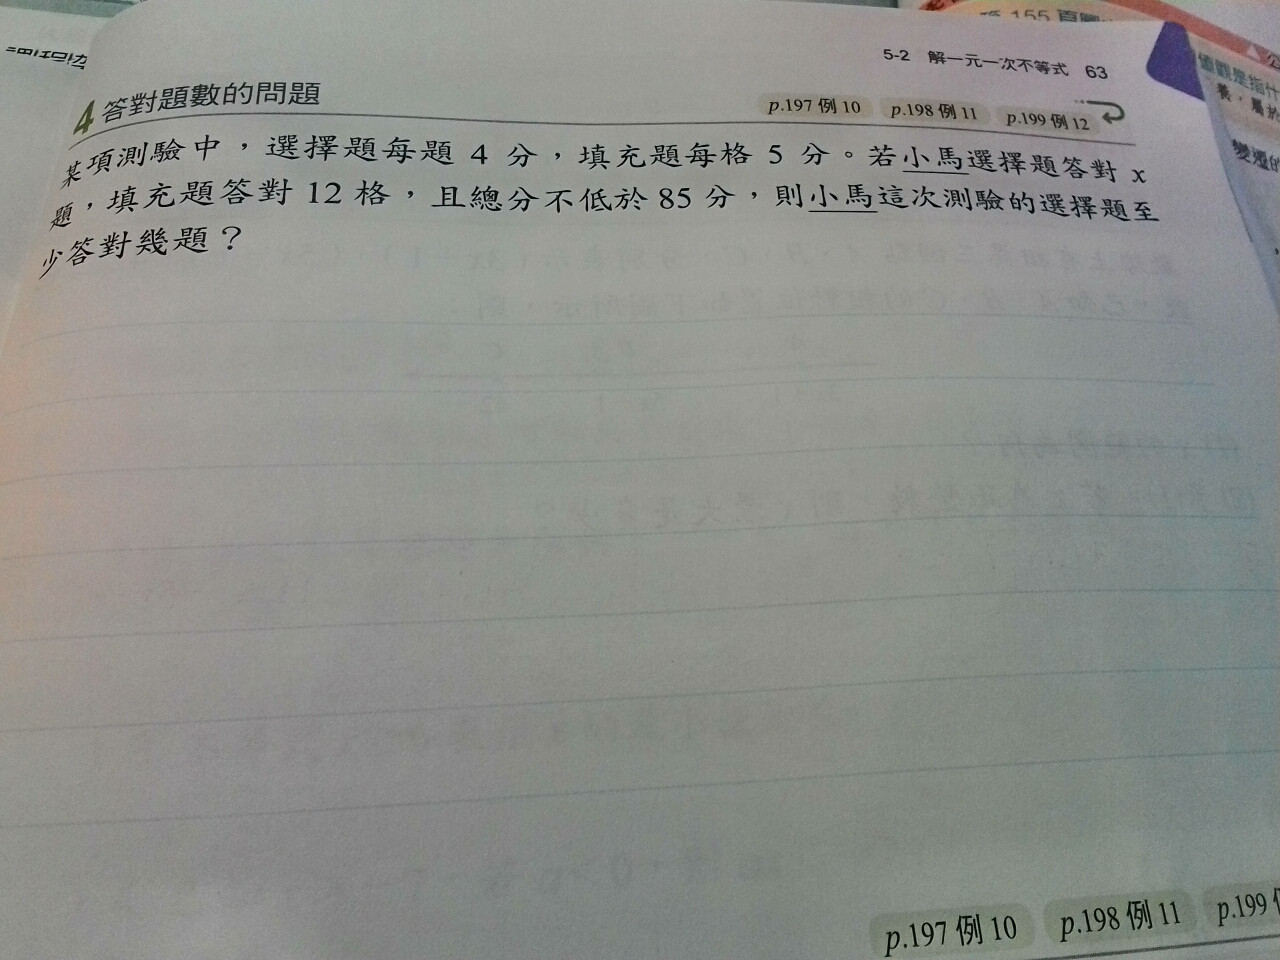 155 頁
5-2 解一元一次不等式 63
4 答對題數的問題
p.197 例 10 p.198 例 11 p.199 例 12
某項測驗中，選擇題每題 4 分，填充題每格 5 分。若小馬選擇題答對 x
題，填充題答對 12 格，且總分不低於 85 分，則小馬這次測驗的選擇題至
少答對幾題？
p.197 例 10 p.198 例 11 p.199